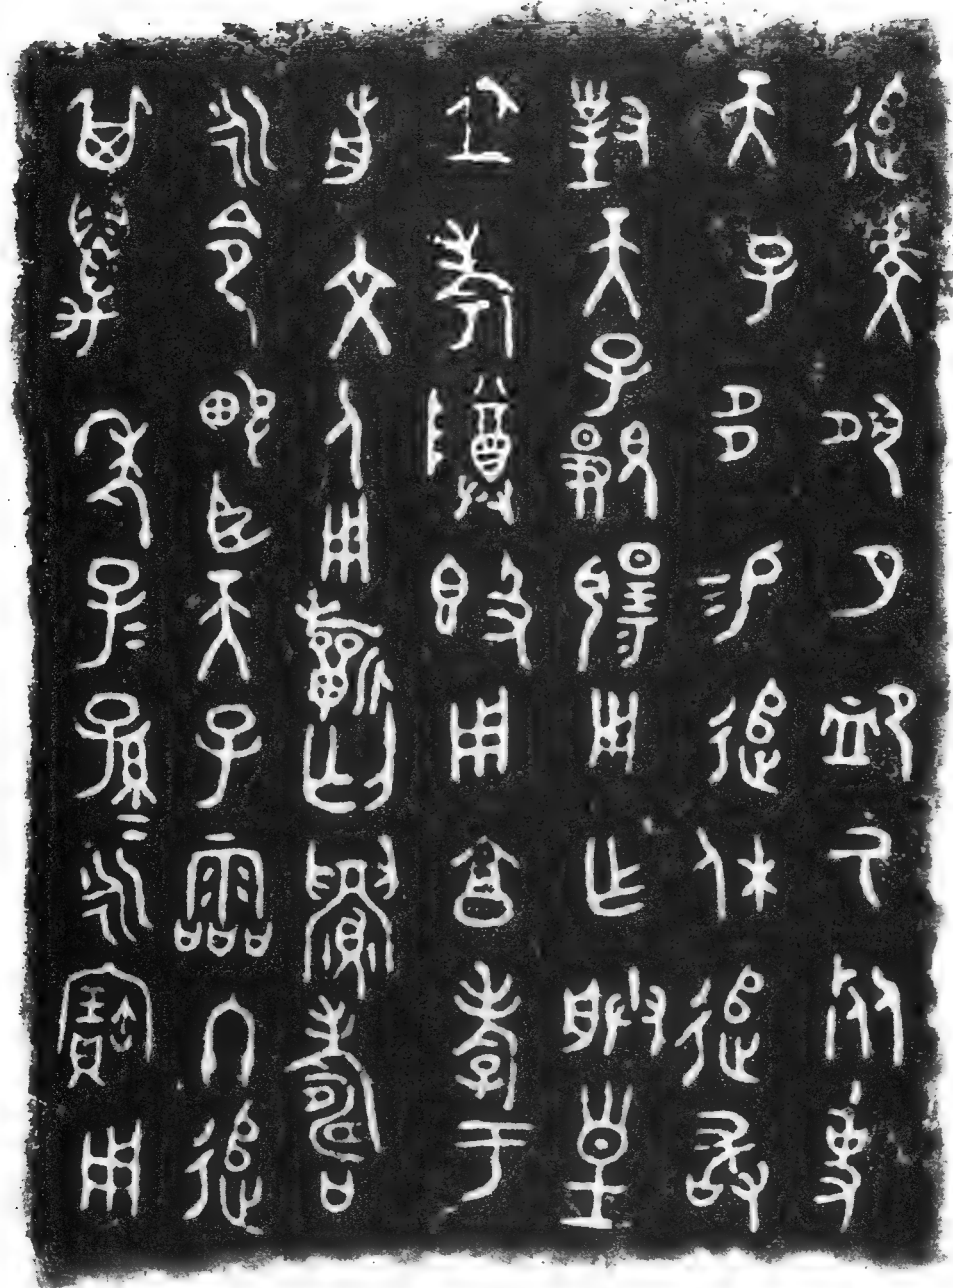 追虔夙夕卹氒死事
天子多易追休追敢
對天子覭揚用乍朕皇
且考尊𣪘用亯孝于
前文人用𣄨匄眉壽
永令畯臣天子霝冬追
其萬年子=孫=永寶用